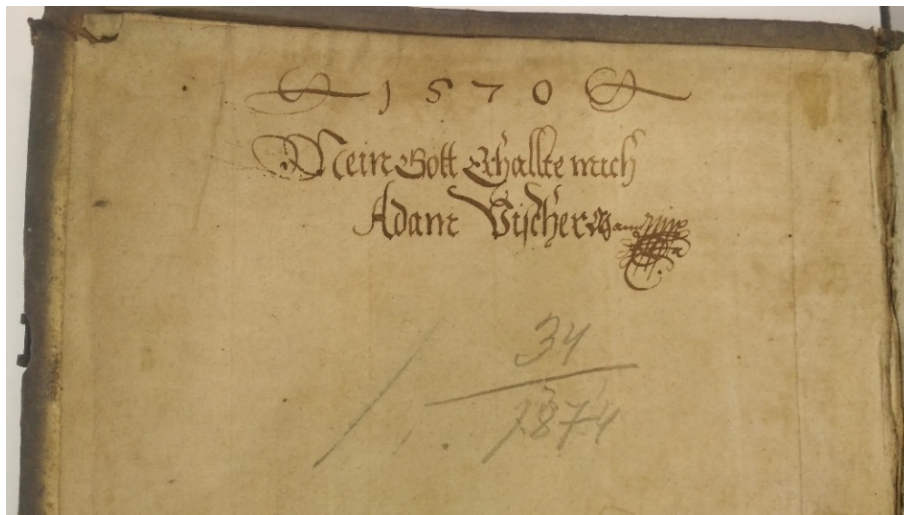 1570
Mein Gott Erhallte mich
Adam Vischer
34
1874